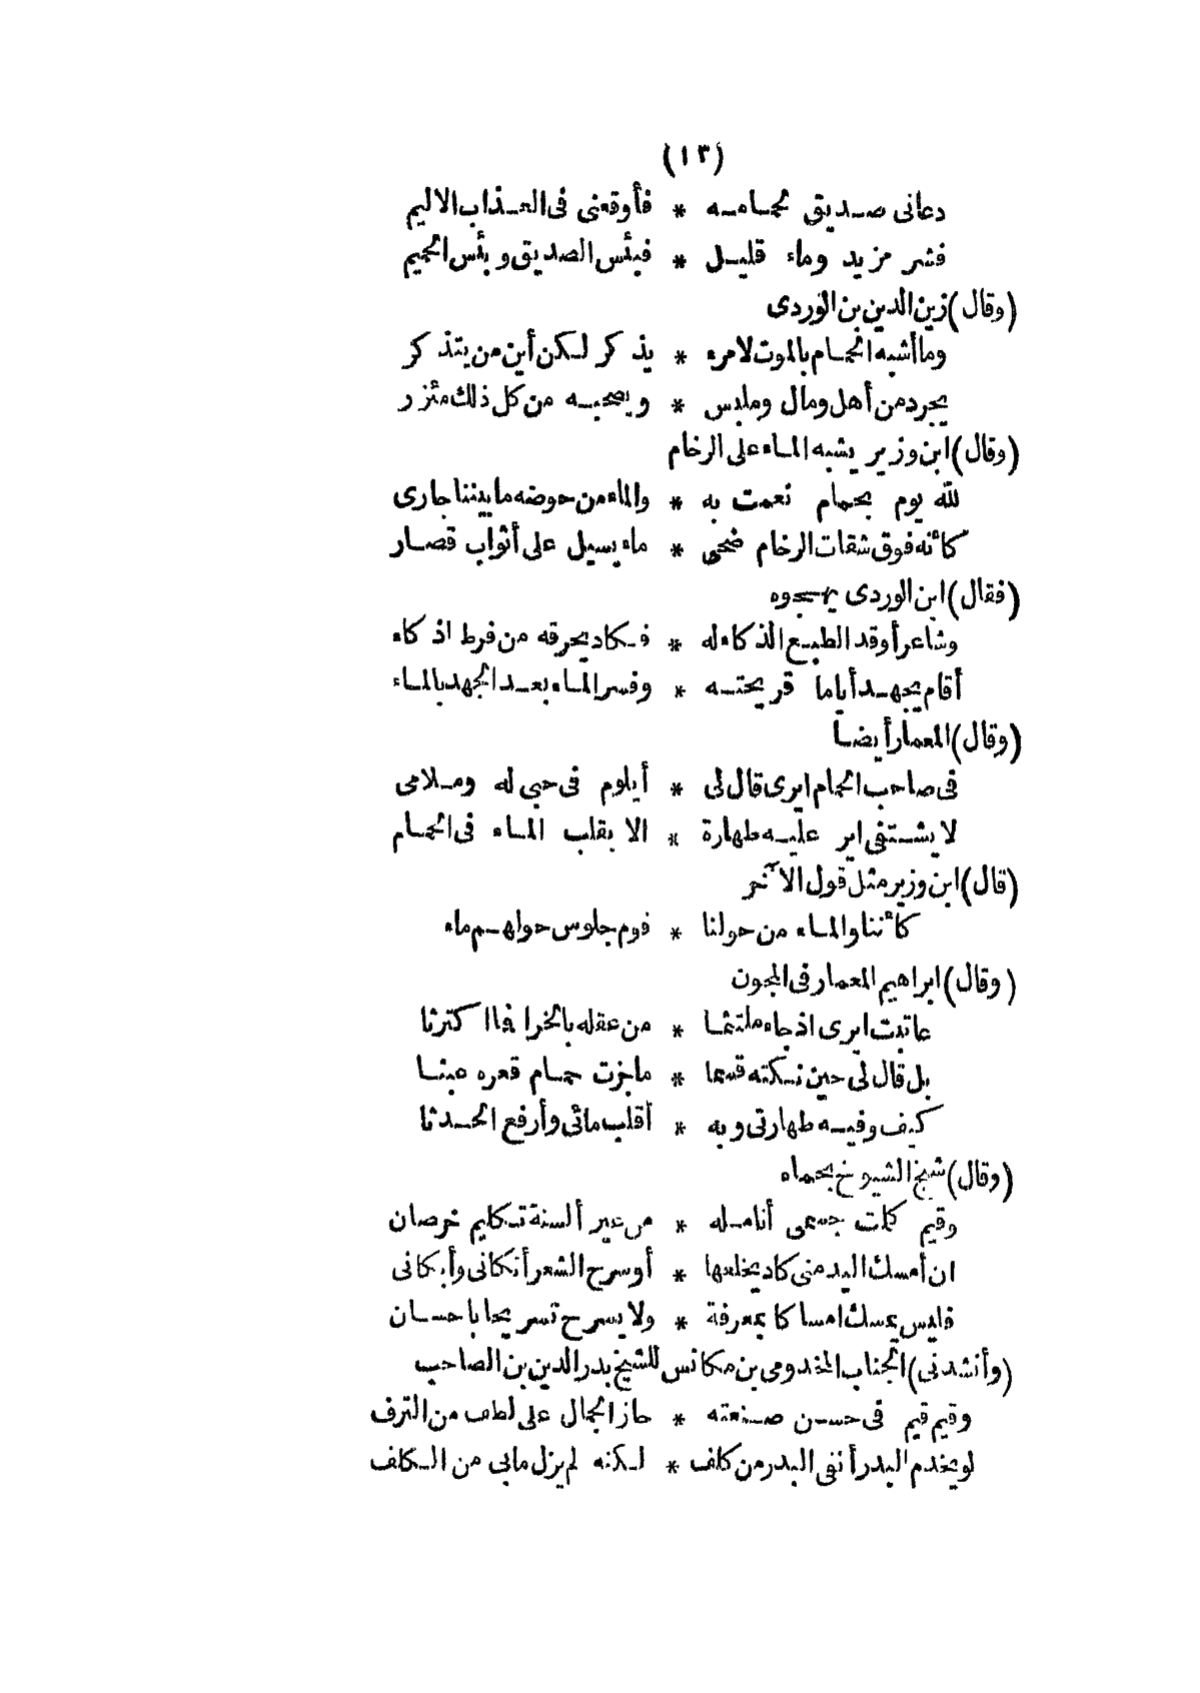 (١٣)
دعانى صديق لحمامه * فأوقعنى فى العذاب الاليم
فشر مزيد وماء قليل * فبئس الصديق وبئس الحميم
(وقال) زين الدين بن الوردى
وما أشبه الحمام بالموت لامرء * يذكر لكن أين من يتذكر
يجرد من أهل ومال وملبس * ويصحبه من كل ذلك مئزر
(وقال) ابن وزير يشبه الماء على الرخام
لله يوم بحمام نعمت به * والماء من حوضه ما بيننا جارى
كأنه فوق شقات الرخام ضحى * ماء يسيل على أثواب قصار
(فقال) ابن الوردى يهجوه
وشاعر أوقد الطبع الذكاء له * فكاد يحرقه من فرط اذكاء
أقام يجهد أياما قريحته * وفسر الماء بعد الجهد بالماء
(وقال) المعمار أيضا
فى صاحب الحمام ايرى قال لى * أيلوم فى حبى له وملامى
لا يشتفى اير عليه طهارة * الا بقلب الماء فى الحمام
(قال) ابن وزير مثل قول الآخر
كأننا والماء من حولنا * قوم جلوس حولهم ماء
(وقال) ابراهيم المعمار فى المجون
عاتبت ايرى اذ جاء ملتثما * من عقله بالخرا فما اكترثا
بل قال لى حين نكته قسما * ما جزت حمام قعره عبثا
كيف وفيه طهارتى وبه * أقلب مائى وأرفع الحدثا
(وقال) شيخ الشيوخ بحماه
وقيم كلمت جسمى أنامله * من غير ألسنة تكليم خرصان
ان أمسك اليد منى كاد يخلعها * أو سرح الشعر أنكانى وأبكانى
فليس يمسك امساكا بمعرفة * ولا يسرح تسريحا باحسان
(وأنشدنى) الجناب المخدومى بن مكانس للشيخ بدر الدين بن الصاحب
وقيم قيم فى حسن صنعته * حاز الجمال على لطف من الترف
لو يخدم البدر أنقى البدر من كلف * لكنه لم يزل مابى من الكلف